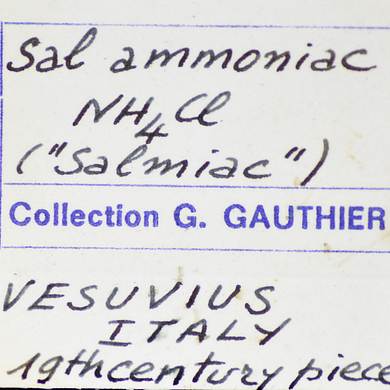 Sal ammoniac
NH4Cl
("Salmiac")
Collection G. GAUTHIER
VESUVIUS
ITALY
19thcentury piece